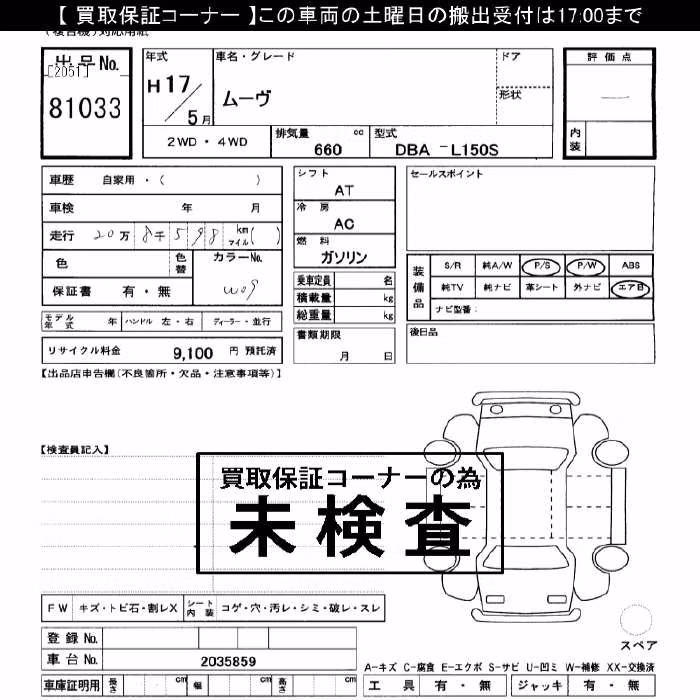 【 買取保証コーナー 】この車両の土曜日の搬出受付は17:00まで
(複合機)対応用紙
出品No. [2051] 81033
年式 H17/5月
車名・グレード ムーヴ
ドア
形状
評価点
内装
2WD・4WD
排気量 660 cc
型式 DBA -L150S
車歴 自家用・( )
車検 年 月
走行 20万8千598 km マイル( )
色 色替 カラーNo. W09
保証書 有・無
モデル年式 年 ハンドル 左・右 ディーラー・並行
リサイクル料金 9,100 円 預託済
シフト AT
冷房 AC
燃料 ガソリン
乗車定員 名
積載量 kg
総重量 kg
書類期限 月 日
セールスポイント
装備品 S/R 純A/W P/S P/W ABS
純TV 純ナビ 革シート 外ナビ エアB
ナビ型番:
後日品
【出品店申告欄(不良箇所・欠品・注意事項等)】
【検査員記入】
買取保証コーナーの為
未検査
FW キズ・トビ石・割レX シート内装 コゲ・穴・汚レ・シミ・破レ・スレ
登録No.
車台No. 2035859
車庫証明用 長さ cm 幅 cm 高さ cm
スペア
A-キズ C-腐食 E-エクボ S-サビ U-凹ミ W-補修 XX-交換済
工具 有・無 ジャッキ 有・無